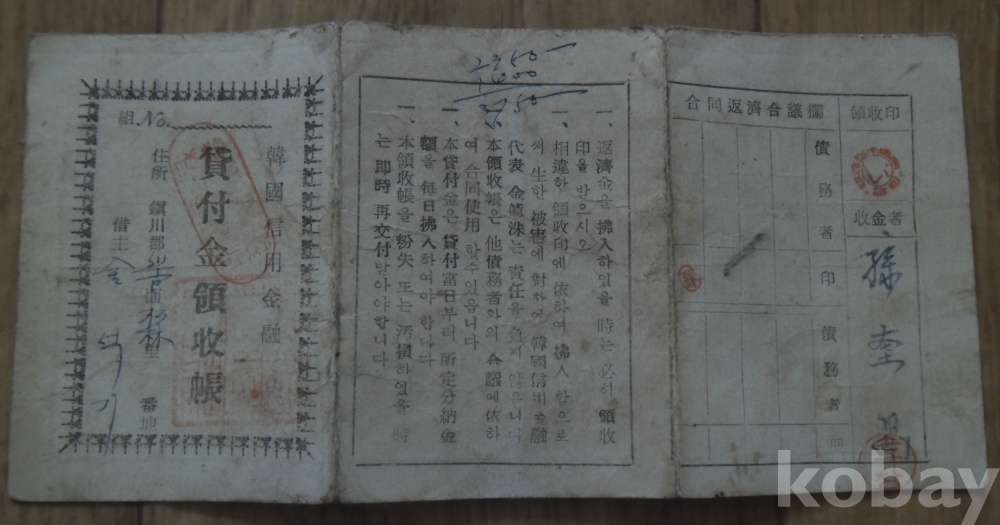 韓國信用金融
貸付金領收帳
組 No.
住所 鎭川郡 里 番地
借主
2750
一、返濟金을 拂入하였을 時는 必히 領收
印을 받으시오
一、相違한 領收印에 依하여 拂入 함으로
써 生한 被害에 對하여 韓國信用金融
代表 金 洙는 責任을 負지 않읍니다
一、本領收帳은 他債務者와의 合議에 依하
여 合同使用 할수 있읍니다
一、本貸付金은 貸付當日부터 所定分納金
額을 每日拂入하여야 합니다
一、本領收帳을 粉失 또는 汚損하였을 時
는 即時 再交付받아야합니다
合同返濟合議欄
債務者印
債務者印
領收印
收金者
孫
kobay